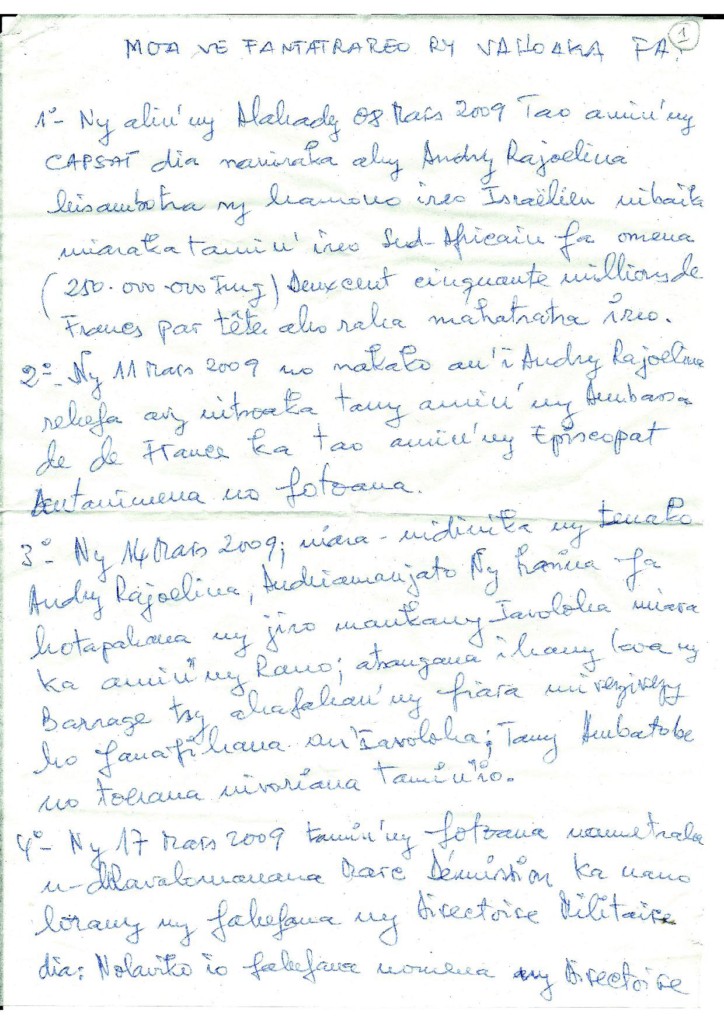 1
MOA VE FANTATRAREO RY VAHOAKA FA:
1°- Ny alin'ny Alahady 08 Mars 2009 Tao amin'ny
CAPSAT dia naniraka ahy Andry Rajoelina
hisambotra ny hamono ireo Israëlien nibaiko
miaraka tamin' ireo Sud-Africain fa omena
(250.000.000 Fmg) Deux cent cinquante millions de
Francs par tête aho raha mahatratra ireo.
2°- Ny 11 Mars 2009 no nalako an'i Andry Rajoelina
rehefa avy nitsoaka tany amin'ny Ambassa
de de France ka tao amin'ny Episcopat
Antanimena no fotoana.
3°- Ny 14 Mars 2009; niara-nidinika ny tenako
Andry Rajoelina, Andriamanjato Ny Hasina fa
hotapahana ny jiro mankany Iavoloha miara
ka amin'ny Rano; atsangana ihany koa ny
Barrage tsy ahafahan'ny fiara mivezivezy
ho fanafihana an'Iavoloha; Tany Ambatobe
no toerana nivoriana tamin'io.
4°- Ny 17 Mars 2009 tamin'ny fotoana nametraha
n-dRavalomanana Marc Démission ka nano
lorany ny fahefana ny Directoire Militaire
dia: Nolaviko io fahefana nomena ny Directoire